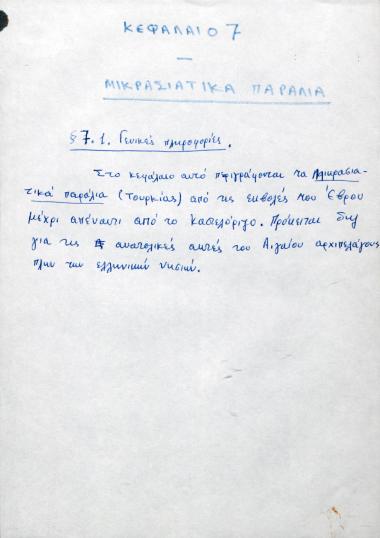 ΚΕΦΑΛΑΙΟ 7
ΜΙΚΡΑΣΙΑΤΙΚΑ ΠΑΡΑΛΙΑ
§ 7.1. Γενικές πληροφορίες.
Στο κεφάλαιο αυτό περιγράφονται τα Μικρασια-
τικά παράλια (Τουρκίας) από τις εκβολές του Έβρου
μέχρι απέναντι από το Καστελόριζο. Πρόκειται δηλ
για τις ανατολικές ακτές του Αιγαίου αρχιπελάγους
πλην των ελληνικών νησιών.